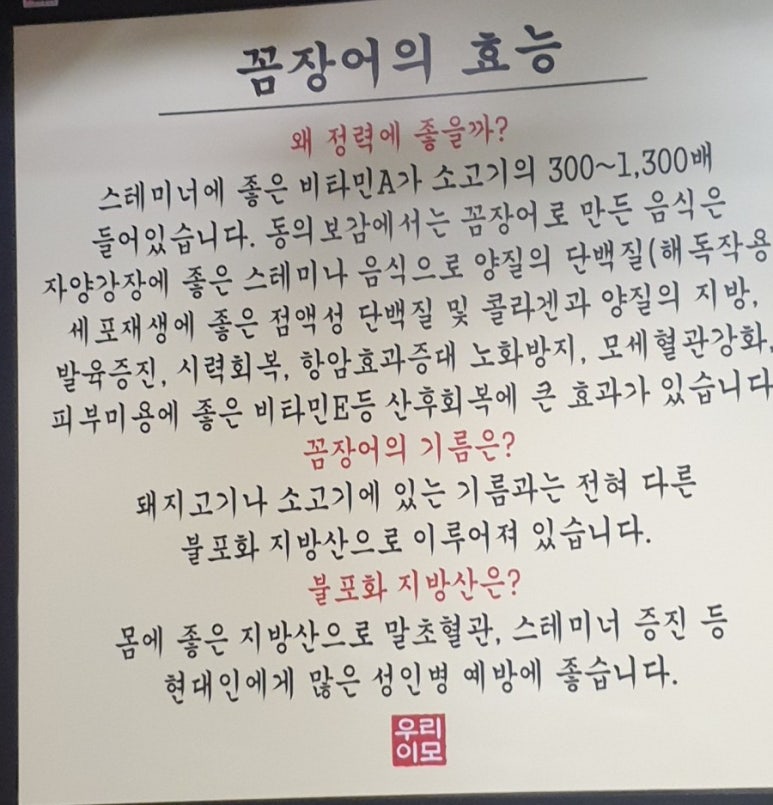 꼼장어의 효능
왜 정력에 좋을까?
스테미너에 좋은 비타민A가 소고기의 300~1,300배
들어있습니다. 동의보감에서는 꼼장어로 만든 음식은
자양강장에 좋은 스테미나 음식으로 양질의 단백질(해독작용
세포재생에 좋은 점액성 단백질 및 콜라겐과 양질의 지방,
발육증진, 시력회복, 항암효과증대 노화방지, 모세혈관강화,
피부미용에 좋은 비타민E등 산후회복에 큰 효과가 있습니다
꼼장어의 기름은?
돼지고기나 소고기에 있는 기름과는 전혀 다른
불포화 지방산으로 이루어져 있습니다.
불포화 지방산은?
몸에 좋은 지방산으로 말초혈관, 스테미너 증진 등
현대인에게 많은 성인병 예방에 좋습니다.
우리
이모